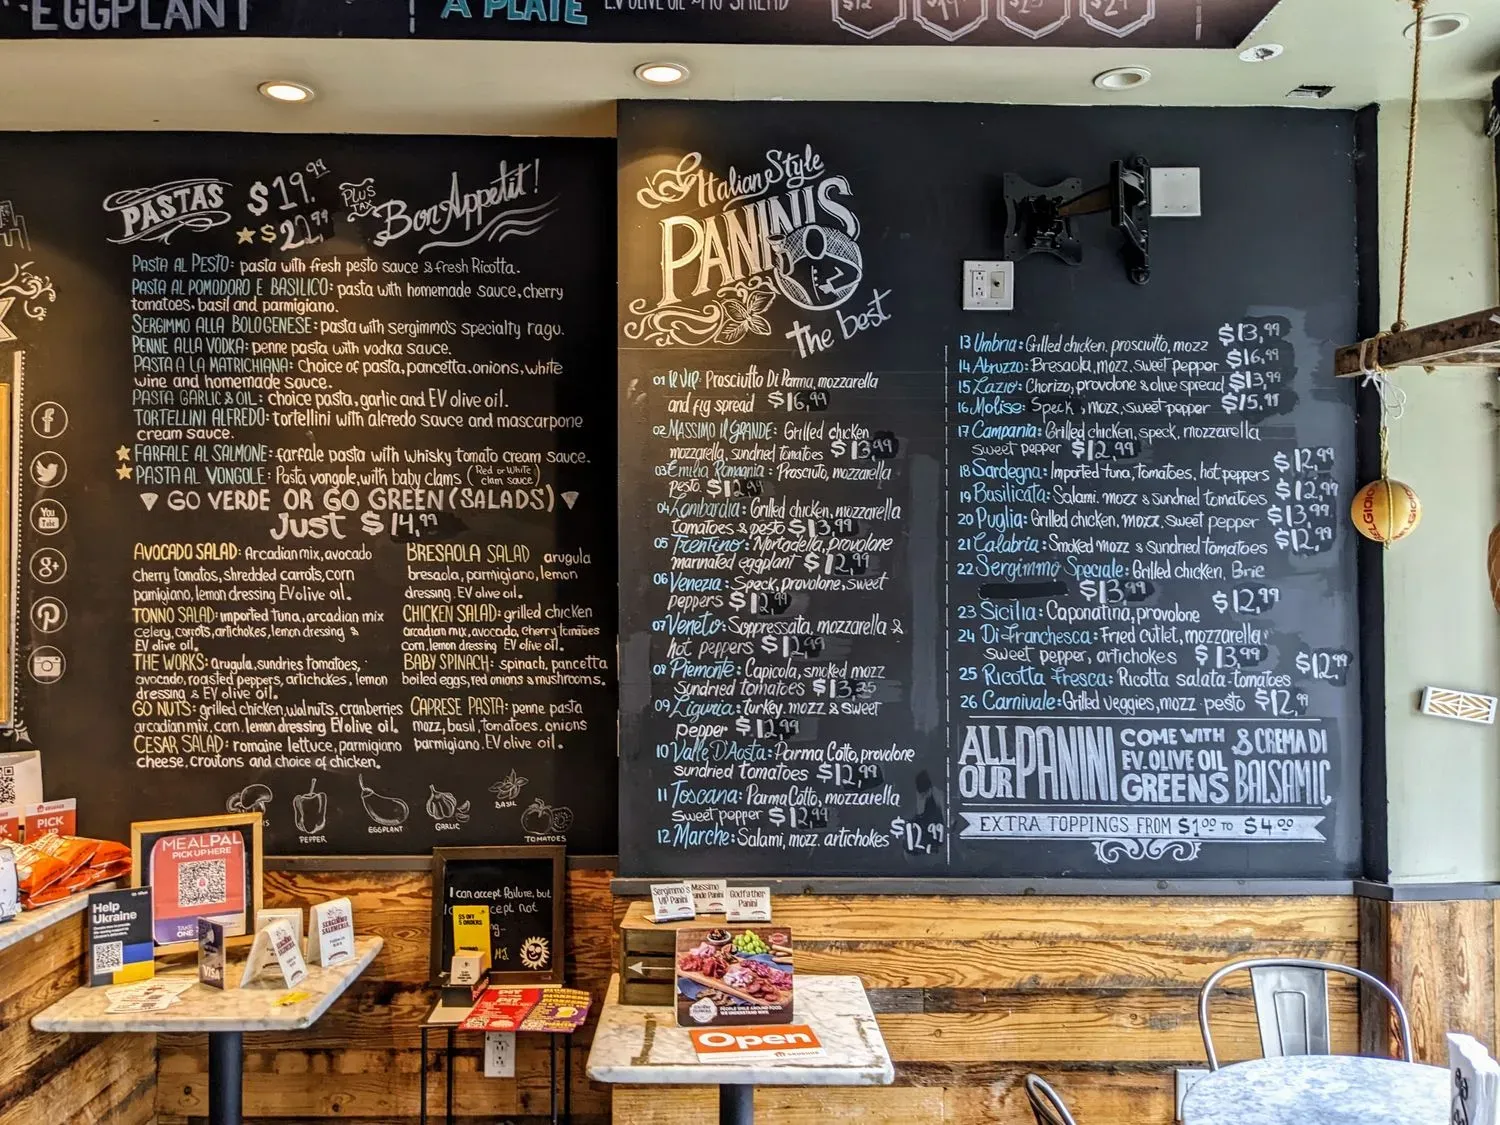 EGGPLANT
A PLATE
PASTAS $19.99
★$22.99
PLUS TAX
Bon Appetit!
PASTA AL PESTO: pasta with fresh pesto sauce & fresh Ricotta.
PASTA AL POMODORO E BASILICO: pasta with homemade sauce, cherry
tomatoes, basil and parmigiano.
SERGIMMO ALLA BOLOGENESE: pasta with sergimmo's specialty ragu.
PENNE ALLA VODKA: penne pasta with vodka sauce.
PASTA A LA MATRICHIANA: Choice of pasta, pancetta, onions, white
wine and homemade sauce.
PASTA GARLIC & OIL: choice pasta, garlic and EV olive oil.
TORTELLINI ALFREDO: tortellini with alfredo sauce and mascarpone
cream sauce.
★ FARFALE AL SALMONE: farfale pasta with whisky tomato cream sauce.
★ PASTA AL VONGOLE: Pasta vongole, with baby clams (Red or White clam sauce)
GO VERDE OR GO GREEN (SALADS)
Just $14.99
AVOCADO SALAD: Arcadian mix, avocado
cherry tomatos, shredded carrots, corn
parmigiano, lemon dressing EV olive oil.
TONNO SALAD: imported tuna, arcadian mix
celery, carrots, artichokes, lemon dressing &
EV olive oil.
THE WORKS: arugula, sundries tomatoes,
avocado, roasted peppers, artichokes, lemon
dressing & EV olive oil.
GO NUTS: grilled chicken, walnuts, cranberries
arcadian mix, corn, lemon dressing EV olive oil.
CESAR SALAD: romaine lettuce, parmigiano
cheese, croutons and choice of chicken.
BRESAOLA SALAD arugula
bresaola, parmigiano, lemon
dressing, EV olive oil.
CHICKEN SALAD: grilled chicken
arcadian mix, avocado, cherry tomatoes
corn, lemon dressing EV olive oil.
BABY SPINACH: spinach, pancetta
boiled eggs, red onions & mushrooms.
CAPRESE PASTA: penne pasta
mozz, basil, tomatoes, onions
parmigiano, EV olive oil.
PEPPER
EGGPLANT
GARLIC
BASIL
TOMATOES
Italian Style
PANINIS
the best
01 Il VIP: Prosciutto Di Parma, mozzarella
and fig spread $16.99
02 MASSIMO Il GRANDE: Grilled chicken
mozzarella, sundried tomatoes $13.99
03 Emilia Romagna: Prosciuto, mozzarella
pesto. $12.99
04 Lombardia: Grilled chicken, mozzarella
tomatoes & pesto $13.99
05 Trentino: Mortadella, provolone
marinated eggplant $12.99
06 Venezia: Speck, provolone, sweet
peppers $12.99
07 Veneto: Soppressata, mozzarella &
hot peppers $12.99
08 Piemonte: Capicola, smoked mozz
Sundried tomatoes $13.25
09 Liguria: turkey, mozz & sweet
pepper $12.99
10 Valle D'Aosta: Parma Cotto, provolone
sundried tomatoes $12.99
11 Toscana: Parma Cotto, mozzarella
sweet pepper $12.99
12 Marche: Salami, mozz. artichokes $12.99
13 Umbria: Grilled chicken, prosciutto, mozz $13.99
14 Abruzzo: Bresaola, mozz, sweet pepper $16.99
15 Lazio: Chorizo, provolone & olive spread $13.99
16 Molise: Speck, mozz, sweet pepper $15.99
17 Campania: Grilled chicken, speck, mozzarella
sweet pepper $12.99
18 Sardegna: Imported tuna, tomatoes, hot peppers $12.99
19 Basilicata: Salami, mozz & sundried tomatoes $12.99
20 Puglia: Grilled chicken, mozz, sweet pepper $13.99
21 Calabria: Smoked mozz & sundried tomatoes $12.99
22 Sergimmo Speciale: Grilled chicken, Brie
$13.99
23 Sicilia: Caponatina, provolone $12.99
24 Di Franchesca: Fried cutlet, mozzarella
sweet pepper, artichokes $13.99
25 Ricotta Fresca: Ricotta salata tomatoes $12.99
26 Carnivale: Grilled veggies, mozz pesto $12.99
ALL OUR PANINI COME WITH
EV. OLIVE OIL
GREENS & CREMA DI
BALSAMIC
EXTRA TOPPINGS FROM $1.00 TO $4.00
You Tube
g+
BELGIOIO
PICK UP
MEALPAL
PICK UP HERE
TAKE ONE
Help
Ukraine
VISA
I can accept failure, but
M.J.
$5 OFF
5 ORDERS
Sergimmo's
VIP Panini
Massimo
Grande Panini
Godfather
Panini
PEOPLE SMILE AROUND FOOD.
WE UNDERSTAND WHY.
Open
GRUBHUB